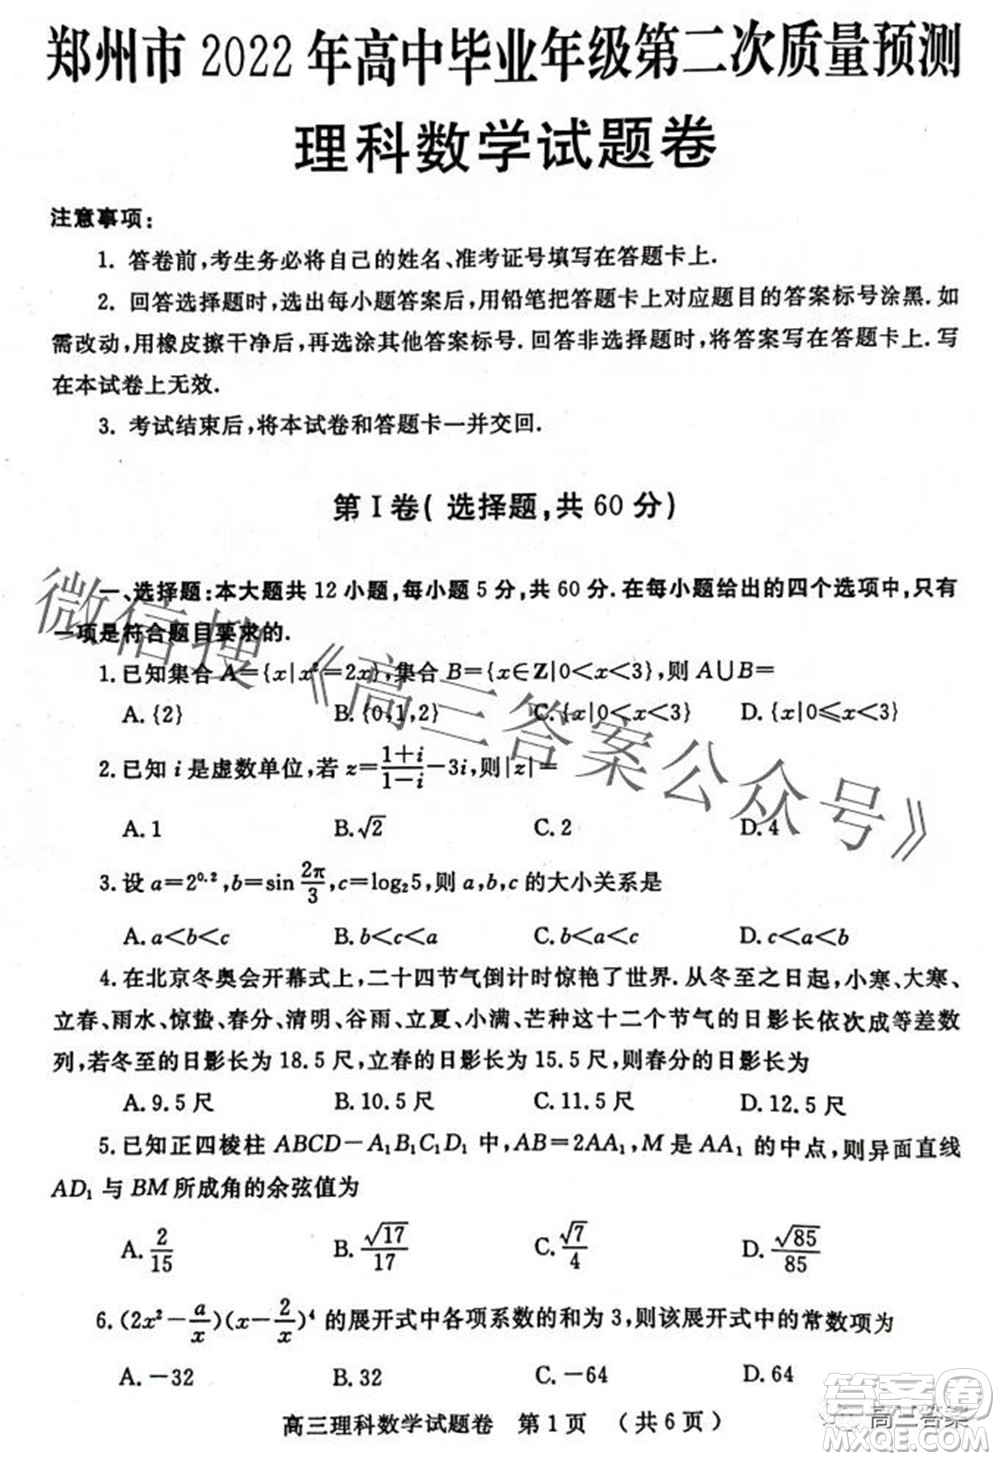 郑州市 2022 年高中毕业年级第二次质量预测
理科数学试题卷
注意事项:
1. 答卷前,考生务必将自己的姓名、准考证号填写在答题卡上.
2. 回答选择题时,选出每小题答案后,用铅笔把答题卡上对应题目的答案标号涂黑.如
需改动,用橡皮擦干净后,再选涂其他答案标号.回答非选择题时,将答案写在答题卡上.写
在本试卷上无效.
3. 考试结束后,将本试卷和答题卡一并交回.
第Ⅰ卷( 选择题,共 60 分)
一、选择题:本大题共 12 小题,每小题 5 分,共 60 分.在每小题给出的四个选项中,只有
一项是符合题目要求的.
1.已知集合 A={x|x²=2x},集合 B={x∈Z|0<x<3},则 A∪B=
A.{2} B.{0,1,2} C.{x|0<x<3} D.{x|0≤x<3}
2.已知 i 是虚数单位,若 z=\frac{1+i}{1-i}-3i,则|z|=
A.1 B.√2 C.2 D.4
3.设 a=2^{0.2},b=sin\frac{2π}{3},c=log₂5,则 a,b,c 的大小关系是
A.a<b<c B.b<c<a C.b<a<c D.c<a<b
4.在北京冬奥会开幕式上,二十四节气倒计时惊艳了世界.从冬至之日起,小寒、大寒、
立春、雨水、惊蛰、春分、清明、谷雨、立夏、小满、芒种这十二个节气的日影长依次成等差数
列,若冬至的日影长为 18.5 尺,立春的日影长为 15.5 尺,则春分的日影长为
A.9.5 尺 B.10.5 尺 C.11.5 尺 D.12.5 尺
5.已知正四棱柱 ABCD-A₁B₁C₁D₁ 中,AB=2AA₁,M 是 AA₁ 的中点,则异面直线
AD₁ 与 BM 所成角的余弦值为
A.\frac{2}{15} B.\frac{√17}{17} C.\frac{√7}{4} D.\frac{√85}{85}
6.(2x²-\frac{a}{x})(x-\frac{2}{x})⁴ 的展开式中各项系数的和为 3,则该展开式中的常数项为
A.-32 B.32 C.-64 D.64
高三理科数学试题卷 第 1 页 (共 6 页)
微信搜《高三答案公众号》
高三答案
答案圈
MXQE.COM